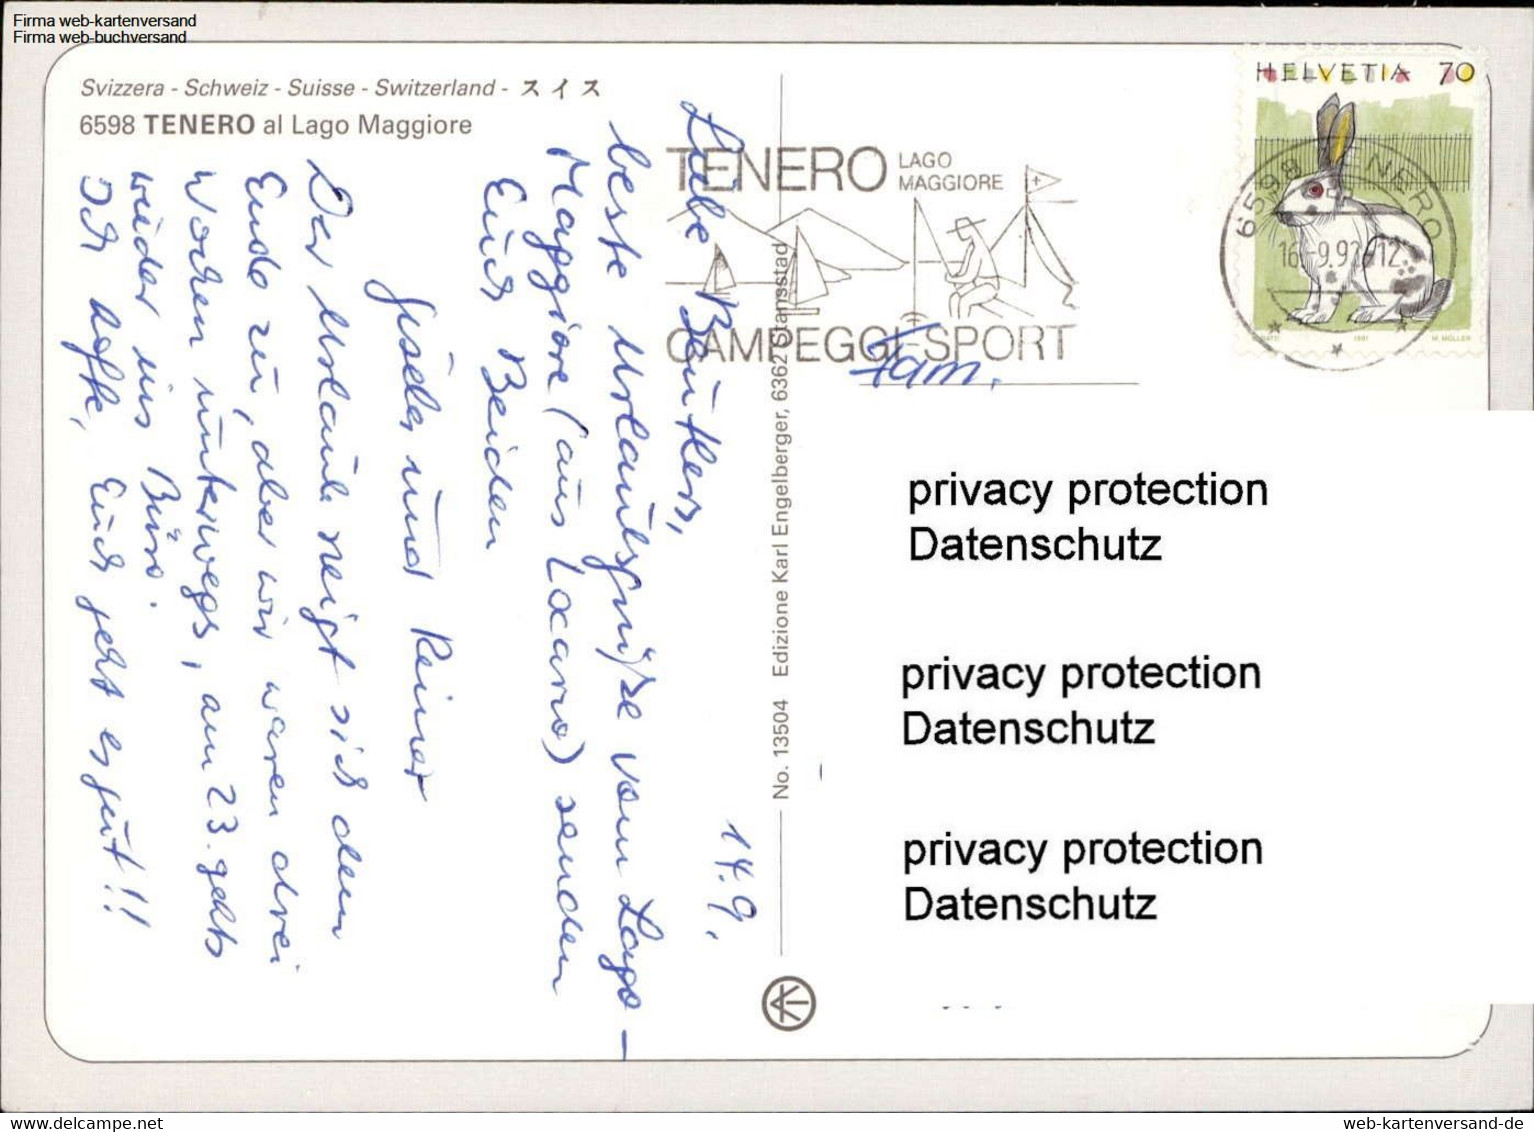 Firma web-kartenversand
Firma web-buchversand
Svizzera - Schweiz - Suisse - Switzerland - スイス
6598 TENERO al Lago Maggiore
14.9.
Liebe
beste Urlaubsgrüße vom Lago-
Maggiore (aus Locarno) senden
Euch Beiden
Gisela und Reiner
Der Urlaub neigt sich dem
Ende zu, aber wir waren drei
Wochen unterwegs, am 23. gehts
wieder ins Büro.
Ich hoffe, Euch geht es gut!!
No. 13504 Edizione Karl Engelberger, 6362 Stansstad
TENERO LAGO
MAGGIORE
CAMPEGGI-SPORT
HELVETIA 70
6598 TENERO
16.-9.92-12
1991 M. MÜLLER
Fam.
privacy protection
Datenschutz
privacy protection
Datenschutz
privacy protection
Datenschutz
www.web-kartenversand.de
web-kartenversand-de